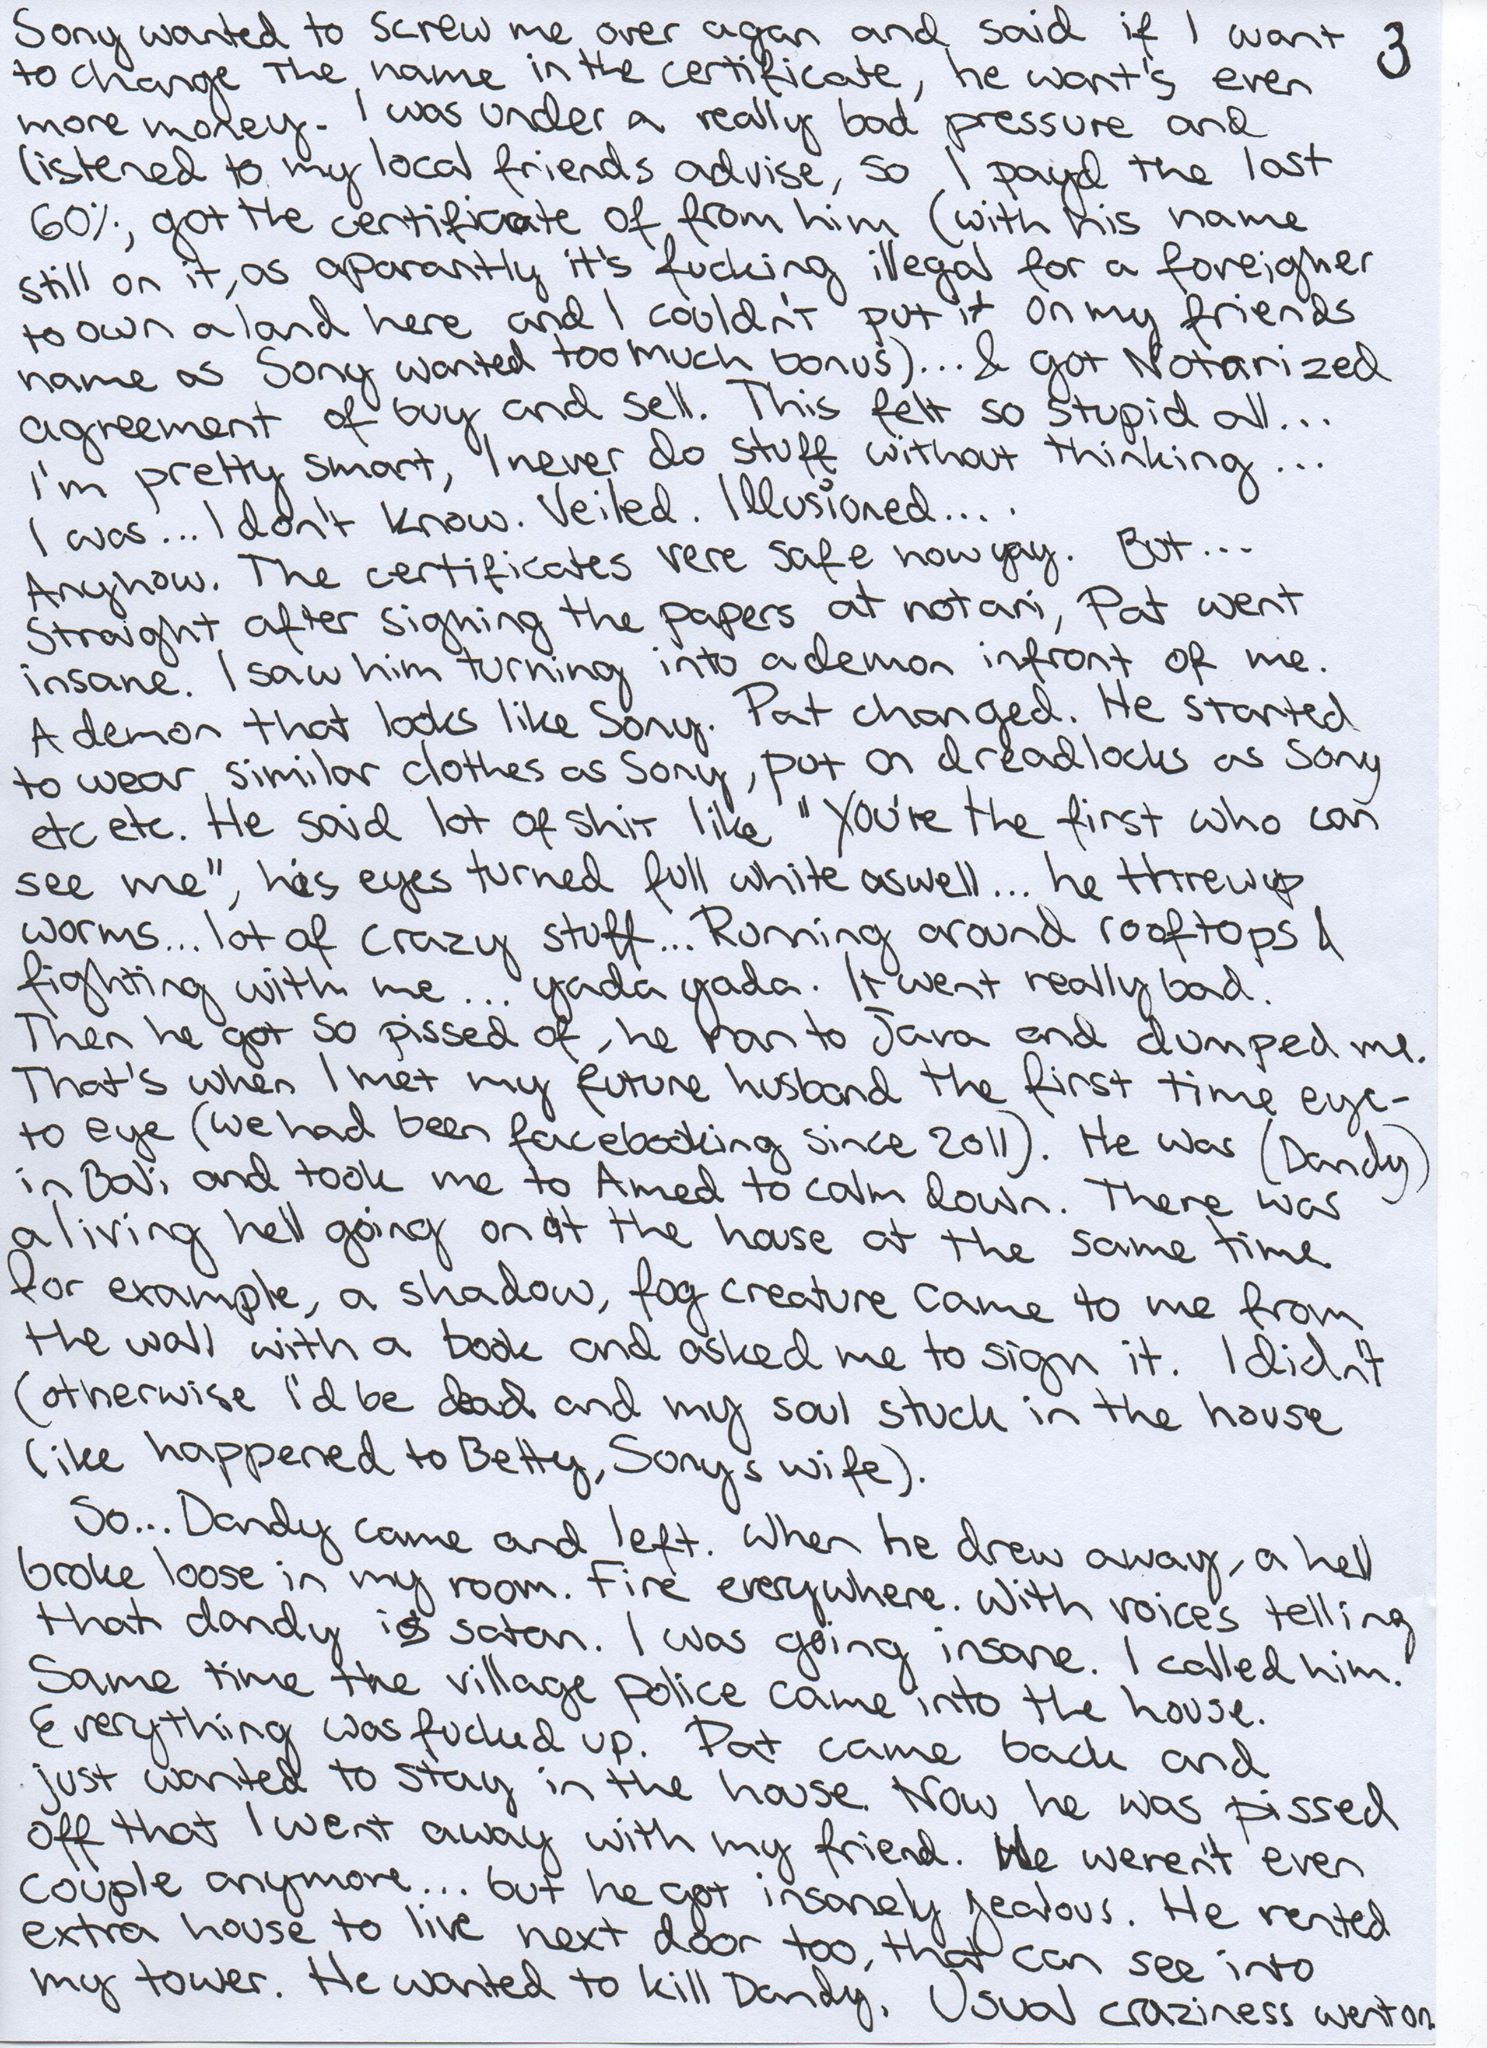 Sony wanted to screw me over agan and said if I want 3
to change the name in the certificate, he want's even
more money. I was under a really bad pressure and
listened to my local friends advise, so I payd the last
60%, got the certificate of from him (with his name
still on it, as aparantly it's fucking illegal for a foreigner
to own a land here and I couldn't put it on my friends
name as Sony wanted too much bonus)... & got Notarized
agreement of buy and sell. This felt so stupid all...
I'm pretty smart, I never do stuff without thinking...
I was... I don't know. Veiled. Illusioned....
Anyhow. The certificates vere safe now yay. But...
Straight after signing the papers at notari, Pat went
insane. I saw him turning into a demon infront of me.
A demon that looks like Sony. Pat changed. He started
to wear similar clothes as Sony, put on dreadlocks as Sony
etc etc. He said lot of shit like "You're the first who can
see me", his eyes turned full white aswell... he threw up
worms... lot of crazy stuff... Running around rooftops &
fighting with me... yada yada. It went really bad.
Then he got so pissed of, he ran to Java and dumped me.
That's when I met my future husband the first time eye-
to eye (we had been facebooking since 2011). He was (Dandy)
in Bali and took me to Amed to calm down. There was
a living hell going on at the house at the same time.
for example, a shadow, fog creature came to me from
the wall with a book and asked me to sign it. I didn't
(otherwise I'd be dead and my soul stuck in the house
like happened to Betty, Sonys wife).
So... Dandy came and left. When he drew away, a hell
broke loose in my room. Fire everywhere. With voices telling
that dandy is satan. I was going insane. I called him.
Same time the village police came into the house.
Everything was fucked up. Pat came back and
just wanted to stay in the house. Now he was pissed
off that I went away with my friend. We weren't even
couple anymore... but he got insanely jealous. He rented
extra house to live next door too, that can see into
my tower. He wanted to kill Dandy. Usual craziness went on